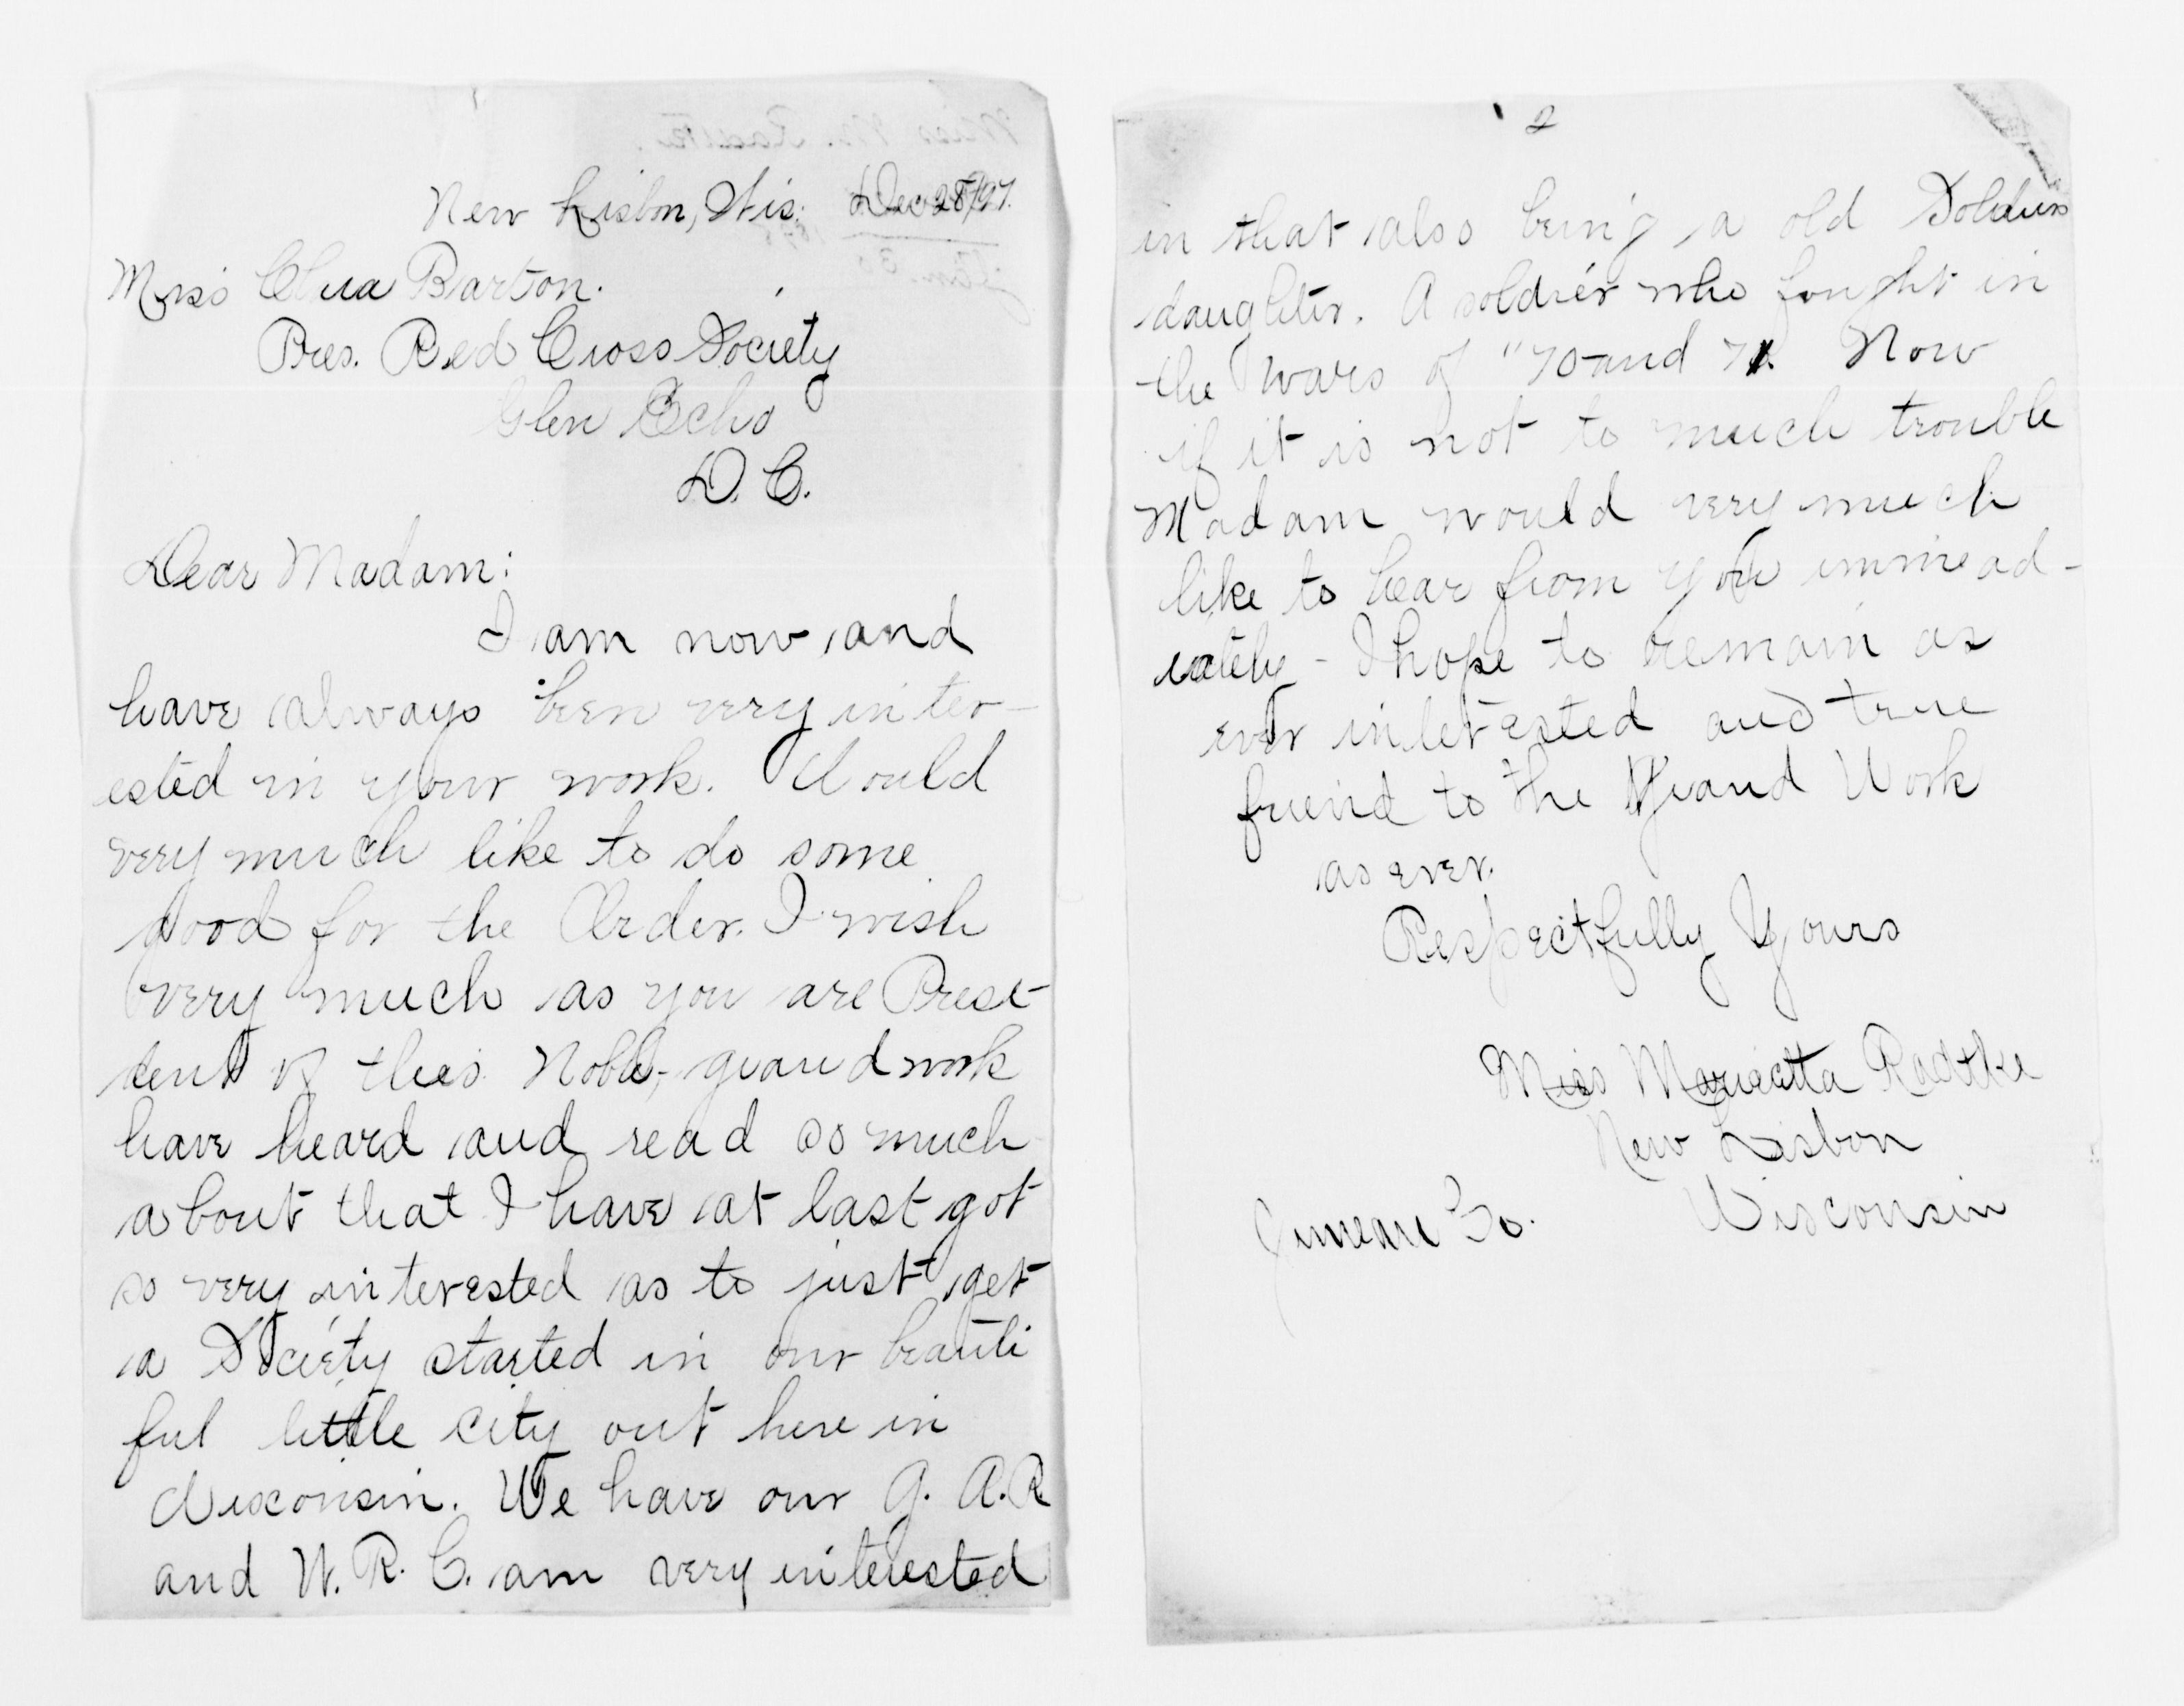 New Lisbon, Wis. Dec 28/97.
Miss Clara Barton.
Pres. Red Cross Society
Glen Echo
D. C.
Dear Madam:
I am now and
have always been very inter-
ested in your work. Would
very much like to do some
good for the Order. I wish
very much as you are Presi-
dent of this Noble, grand work
have heard and read so much
about that I have at last got
so very interested as to just get
a Society started in our beauti
ful little city out here in
Wisconsin. We have our G. A. R.
and W. R. C. am very interested
2
in that also being a old Soldiers
daughter. A soldier who fought in
the wars of "70 and 71. Now
if it is not to much trouble
Madam would very much
like to hear from you immead-
iately - I hope to remain as
ever interested and true
friend to the Grand Work
as ever.
Respectfully Yours
Miss Marieatta Radtke
New Lisbon
Juneau Co. Wisconsin